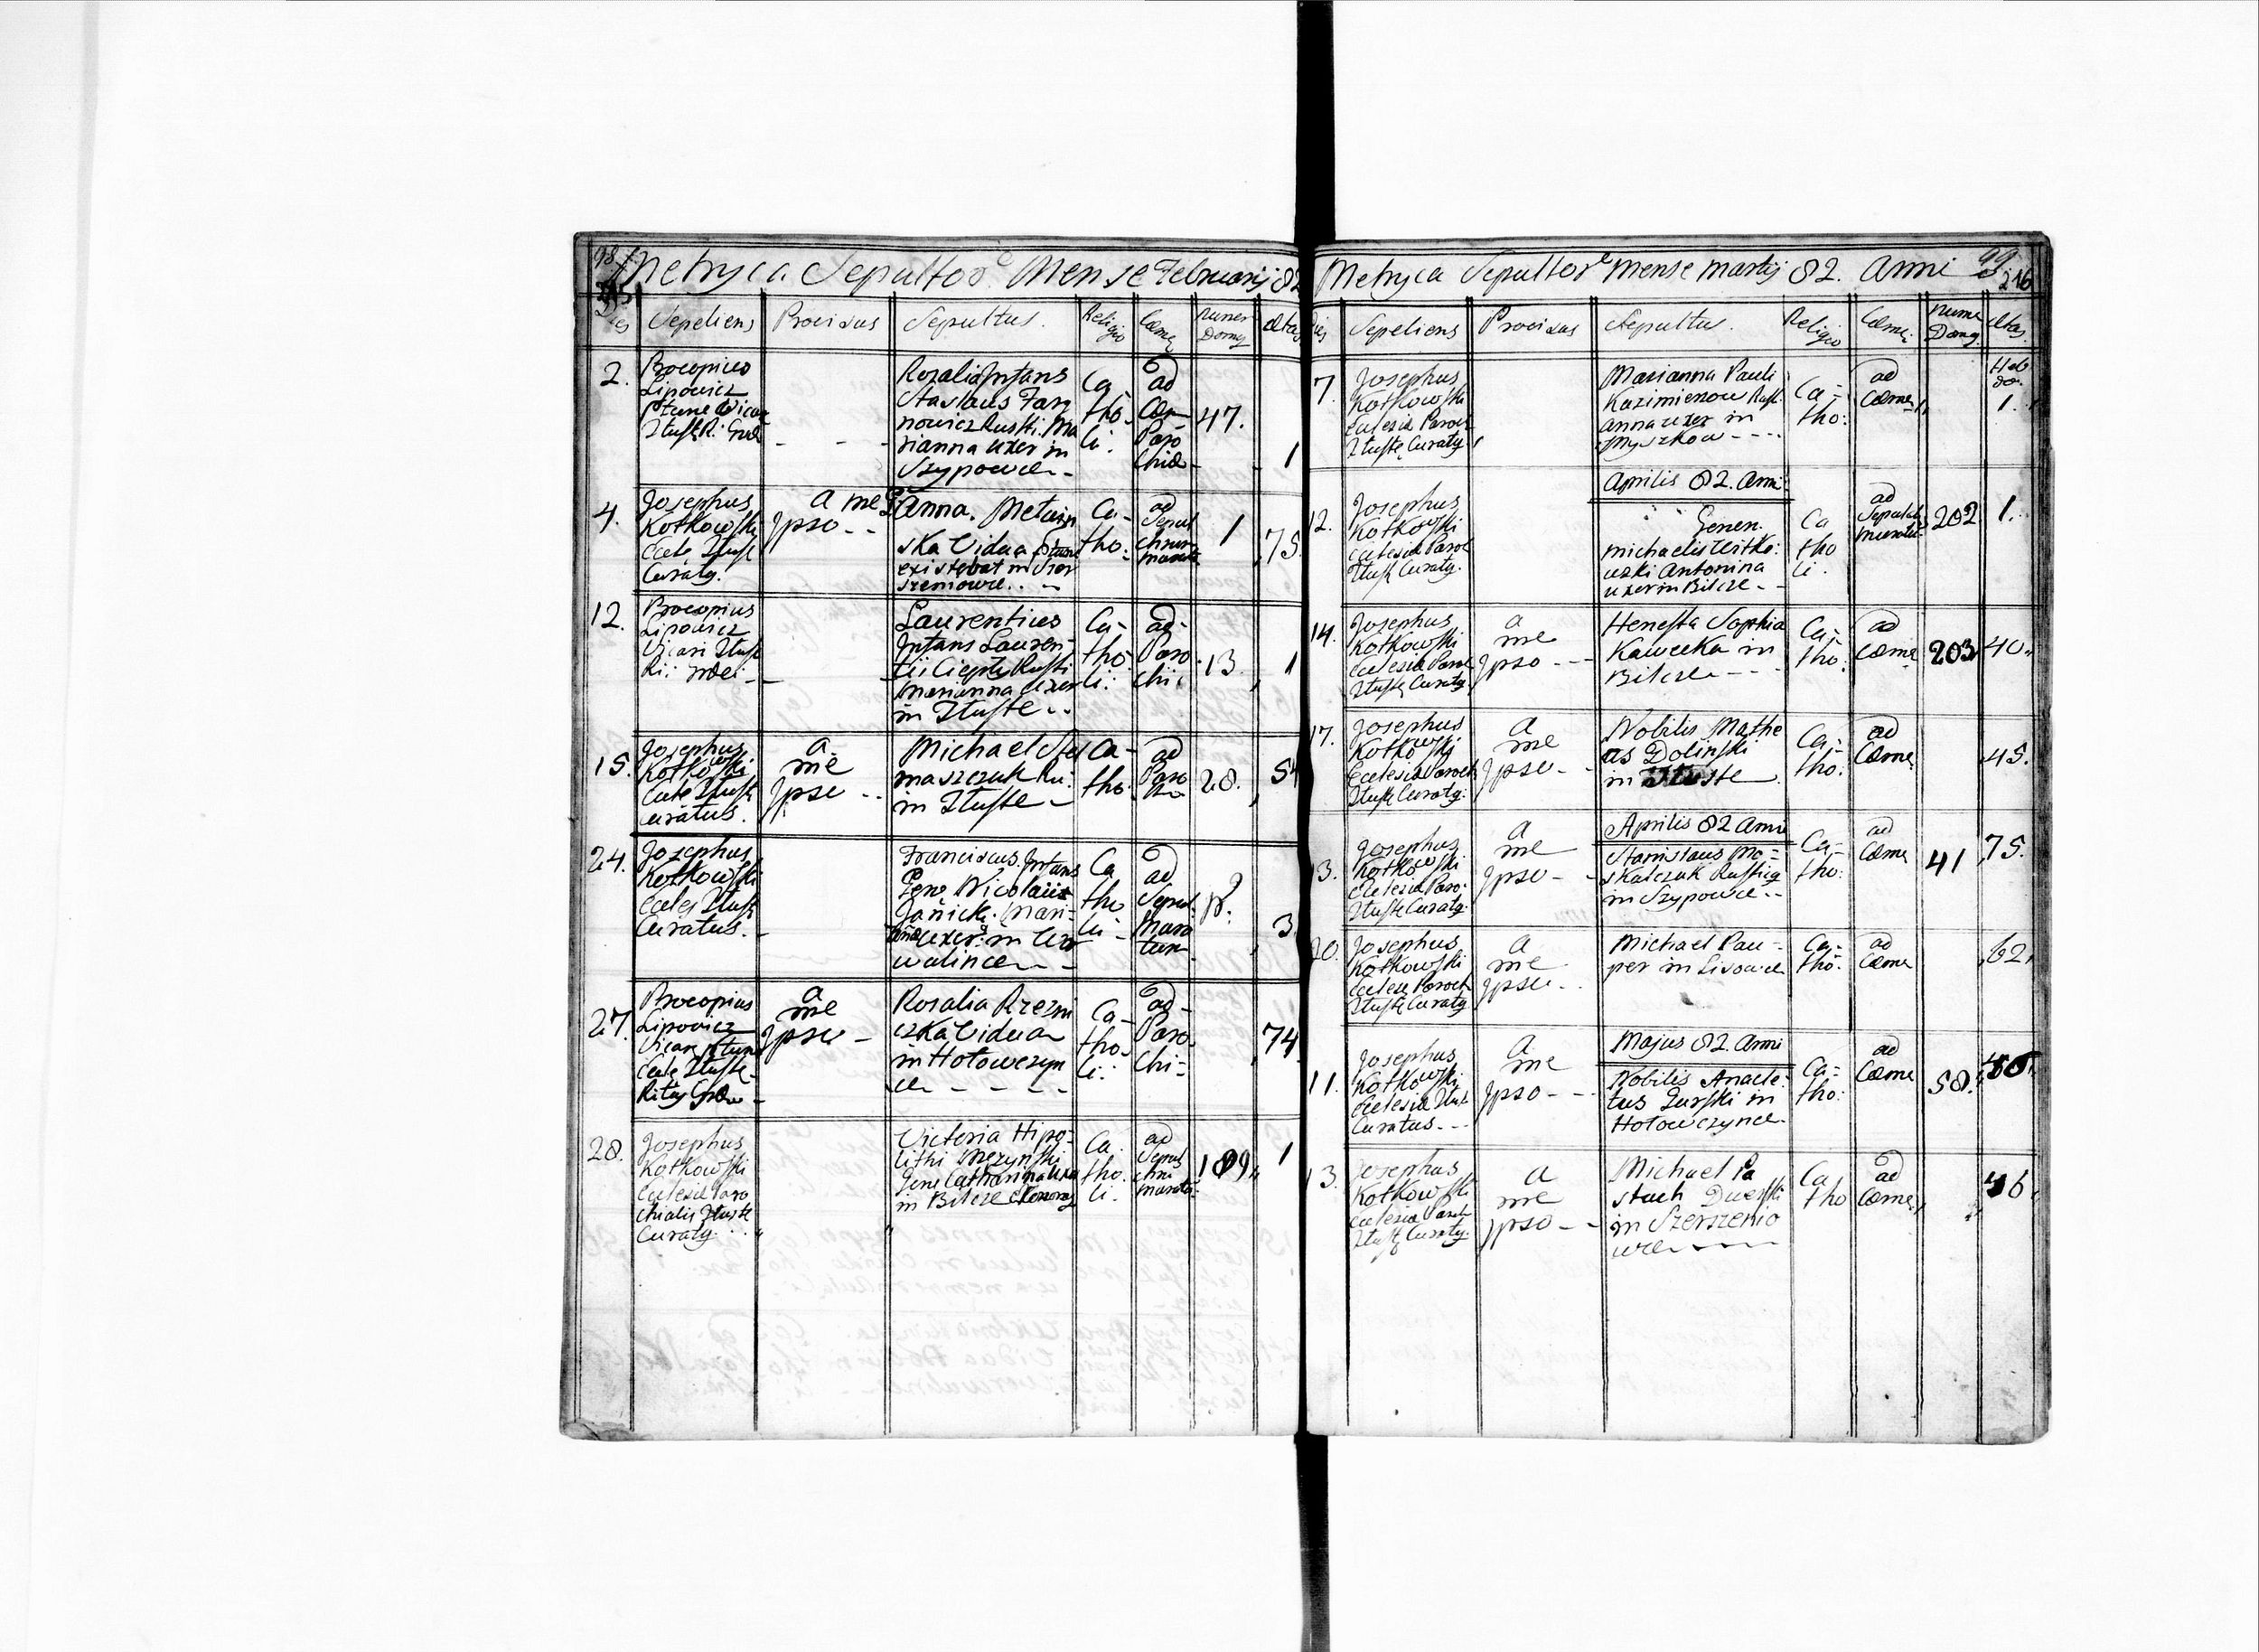 98
Metryca Sepultor Mense Februarij 82
Dies Sepeliens Provisus Sepultus. Religio Cæme Numer Domg Ætas
2. Procopius
Lipowicz
ptunc Vicar
Ztuste R: Græ
- - -
Rozalia Infans
Staslaus Tar
nowicz Rusti. Ma
rianna uxor in
Szypowce -
Ca-
tho-
li:
ad
Cæm
Paro
chiæ
47.
1
4. Josephus
Kotkowski
Ecclę Ztust
Curatg.
a me
Ipso - -
Anna.
ska Vidua ptunc
existebat in Szer
szeniowce. . -
Ca-
tho-
ad
Sepul
chrum
murat
1
75.
12. Procopius
Lipowicz
Vicari Ztust
Rii: Græci -
Laurentius
Infans Lauren
tii Ciepły Rusti
Marianna uxor
in Ztuste - -
Ca-
tho-
li:
ad-
Paro
chi:
13.
1
15. Josephus
Kotkowski
Ecclę Ztust
Curatus.
a
me
Ipso - -
Michael Ste
maszczuk Ru:
in Ztuste -
Ca-
tho-
ad
Paro
28.
54
24. Josephus
Kotkowski
Eccles Ztust
Curatus. -
Franciscus. Infans
Genē Nicolai
Janicki. Mari-
anna uxor: in
walince - -
Ca
tho
li-
ad
Sepul.
Mura
tum
3.
27. Procopius
Lipowicz
Vicar ptunc
Ecclę Ztuste
Ritus Græ -
a
me
Ipso -
Rosalia Rzezni
czka Vidua
in Hołowczyn
ce - - - -
Ca-
tho-
li:
ad-
Paro-
chi-
74
28. Josephus
Kotkowski
Eclesiæ Paro
chialis Ztuste
Curatg. . .
Victoria Hipo-
lithi
Gene Catharina uxor
in Bilcze
Ca-
tho.
li-
ad
Sepul
chru
murato
189,,
1
Metryca Sepultor mense martij 82. Anni 99
216
Dies Sepeliens Provisus Sepultus. Religio Cæme: Nume Domg Ætas.
7. Josephus
Kotkowski
Eclesiæ Paroch
Ztustę Curatg.
Marianna Pauli
Kazimierow Rust.
anna uxor in
Myszkow - - - -
Ca-
tho:
ad
Cæme
Heb
do.
1.
Aprilis 82. Anni
12. Josephus
Kotkowski
Eclesiæ Paroc
Ztust Curatg.
Genen.
Michaelis Witko:
wski Antonina
uxor in Bilcze - -
Ca
tho
li.
ad
Sepulch
Muratu
202
1.
14. Josephus
Kotkowski
Eclesiæ Paroc
Ztustę Curatg.
a
me
Ipso - - -
Honesta Sophia
Kawecka in
Bilcze - - -
Ca-
tho:
ad
Cæme
203
40.
17. Josephus
Kotkowski
Ecclesiæ Paroch
Ztustę Curatg:
a
me
Ipso - -
Nobilis Mathe
as Dolinski
in Ztuste
Ca-
tho:
ad
Cæme
45.
Aprilis 82 Anni
13. Josephus
Kotkowski
Eclesiæ Paro:
Ztustę Curatg.
a
me
Ipso - -
Stanislaus Mo-
skalczuk Rusticg
in Szypowce - -
Ca-
tho:
ad
Cæme
41
75.
20. Josephus
Kotkowski
Ecclesę Paroch
Ztustę Curatg
a
me
Ipso - -
Michael Pau-
per in Lisowce
Ca-
tho:
ad
Cæme
62.
Majus 82. Anni
11. Josephus
Kotkowski
Ecclesiæ Ztust
Curatus - - -
a
me
Ipso - - -
Nobilis Anacle-
tus Gurski in
Hołowczynce
Ca-
tho:
ad
Cæme
58.
13. Josephus
Kotkowski
Eclesiæ Paroch
Ztustę Curatg.
a
me
Ipso - -
Michael Pa
stuch
in Szerszenio
wce - - -
Ca
tho
ad
Cæme